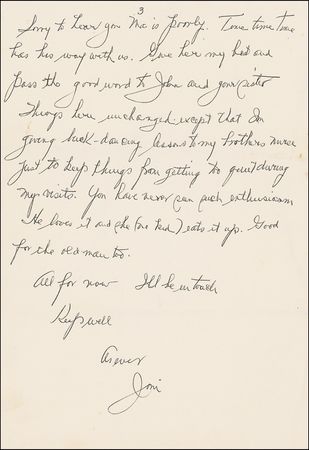 3
Sorry to hear your Ma is poorly. Time time time
has his way with us. Give her my best and
pass the good word to John and your sister
Things here unchanged except that I'm
giving buck-dancing lessons to my brothers nurse
just to keep things from getting to quiet during
my visits. You have never seen such enthusiasm
He loves it and she (no kid) eats it up. Good
for the old man too.
All for now I'll be in touch
Keep well
As ever